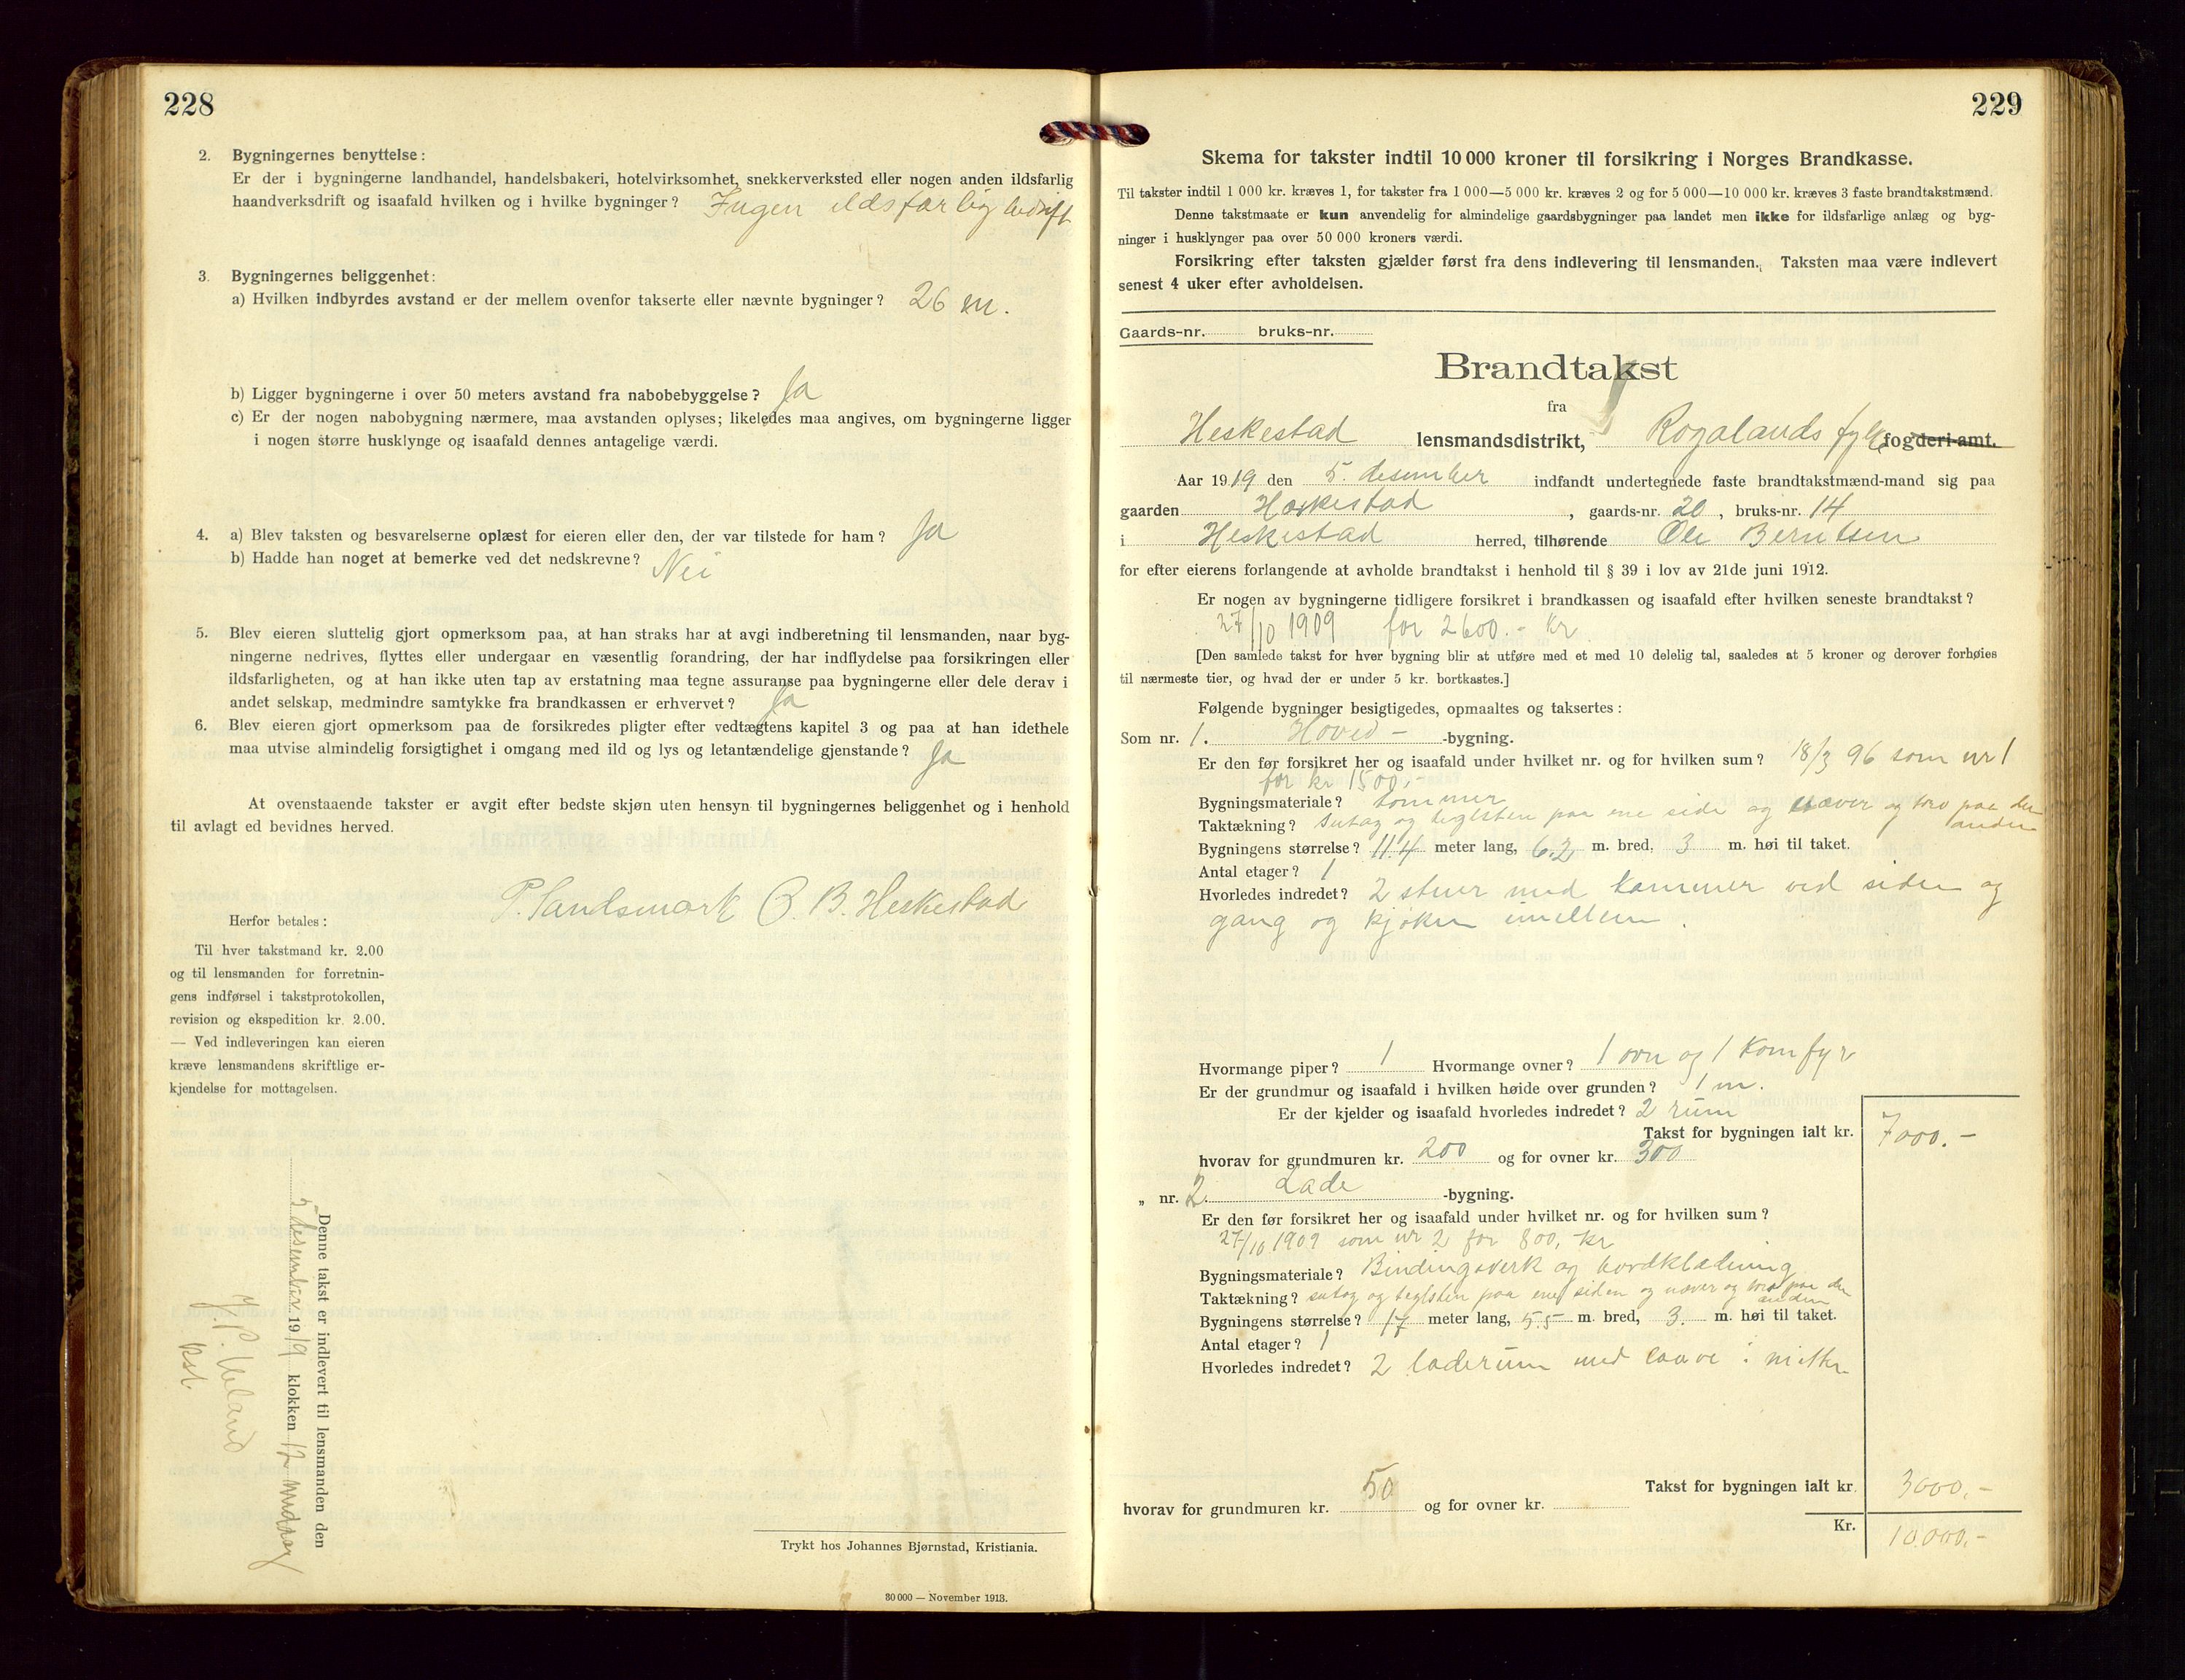 228
2. Bygningernes benyttelse:
Er der i bygningerne landhandel, handelsbakeri, hotelvirksomhet, snekkerverksted eller nogen anden ildsfarlig
haandverksdrift og isaafald hvilken og i hvilke bygninger? Ingen ildsfarlig bedrift
3. Bygningernes beliggenhet:
a) Hvilken indbyrdes avstand er der mellem ovenfor takserte eller nævnte bygninger? 26 m.
b) Ligger bygningerne i over 50 meters avstand fra nabobebyggelse? Ja
c) Er der nogen nabobygning nærmere, maa avstanden oplyses; likeledes maa angives, om bygningerne ligger
i nogen større husklynge og isaafald dennes antagelige værdi.
4. a) Blev taksten og besvarelserne oplæst for eieren eller den, der var tilstede for ham? Ja
b) Hadde han noget at bemerke ved det nedskrevne? Nei
5. Blev eieren sluttelig gjort opmerksom paa, at han straks har at avgi indberetning til lensmanden, naar byg-
ningerne nedrives, flyttes eller undergaar en væsentlig forandring, der har indflydelse paa forsikringen eller
ildsfarligheten, og at han ikke uten tap av erstatning maa tegne assuranse paa bygningerne eller dele derav i
andet selskap, medmindre samtykke fra brandkassen er erhvervet? Ja
6. Blev eieren gjort opmerksom paa de forsikredes pligter efter vedtægtens kapitel 3 og paa at han idethele
maa utvise almindelig forsigtighet i omgang med ild og lys og letantændelige gjenstande? Ja
At ovenstaaende takster er avgit efter bedste skjøn uten hensyn til bygningernes beliggenhet og i henhold
til avlagt ed bevidnes herved.
P. Sandsmark O. B. Heskestad
Herfor betales:
Til hver takstmand kr. 2.00
og til lensmanden for forretnin-
gens indførsel i takstprotokollen,
revision og ekspedition kr. 2.00.
— Ved indleveringen kan eieren
kræve lensmandens skriftlige er-
kjendelse for mottagelsen.
Denne takst er indlevert til lensmanden den
5 desember 1919 klokken 12 middag
Kst
Trykt hos Johannes Bjørnstad, Kristiania.
30 000 — November 1913.
229
Skema for takster indtil 10 000 kroner til forsikring i Norges Brandkasse.
Til takster indtil 1 000 kr. kræves 1, for takster fra 1 000—5 000 kr. kræves 2 og for 5 000—10 000 kr. kræves 3 faste brandtakstmænd.
Denne takstmaate er kun anvendelig for almindelige gaardsbygninger paa landet men ikke for ildsfarlige anlæg og byg-
ninger i husklynger paa over 50 000 kroners værdi.
Forsikring efter taksten gjælder først fra dens indlevering til lensmanden. Taksten maa være indlevert
senest 4 uker efter avholdelsen.
Gaards-nr. bruks-nr.
Brandtakst
fra
Heskestad lensmandsdistrikt, Rogalands fylke fogderi-amt.
Aar 1919 den 5. desember indfandt undertegnede faste brandtakstmænd-mand sig paa
gaarden Heskestad, gaards-nr. 20, bruks-nr. 14
i Heskestad herred, tilhørende Ole Berntsen
for efter eierens forlangende at avholde brandtakst i henhold til § 39 i lov av 21de juni 1912.
Er nogen av bygningerne tidligere forsikret i brandkassen og isaafald efter hvilken seneste brandtakst?
27/10 1909 for 2600.- kr
[Den samlede takst for hver bygning blir at utføre med et med 10 delelig tal, saaledes at 5 kroner og derover forhøies
til nærmeste tier, og hvad der er under 5 kr. bortkastes.]
Følgende bygninger besigtigedes, opmaaltes og taksertes:
Som nr. 1. Hoved- -bygning.
Er den før forsikret her og isaafald under hvilket nr. og for hvilken sum? 18/3 96 som nr 1
for kr 1500,-
Bygningsmateriale? tømmer
Taktækning? sutag og teglsten paa ene side og næver og torv paa den
anden
Bygningens størrelse? 11.4 meter lang, 6.2 m. bred. 3 m. høi til taket.
Antal etager? 1
Hvorledes indredet? 2 stuer med kammer ved siden og
gang og kjøken imellem.
Hvormange piper? 1 Hvormange ovner? 1 ovn og 1 komfyr
Er der grundmur og isaafald i hvilken høide over grunden? 1 m.
Er der kjelder og isaafald hvorledes indredet? 2 rum
Takst for bygningen ialt kr. 7000.-
hvorav for grundmuren kr. 200 og for ovner kr. 300
„ nr. 2. Lade -bygning.
Er den før forsikret her og isaafald under hvilket nr. og for hvilken sum?
27/10 1909 som nr 2 for 800,- kr
Bygningsmateriale? Bindingsverk og bordklædning
Taktækning? sutag og teglsten paa ene siden og næver og torv paa den
anden
Bygningens størrelse? 17 meter lang, 5.5 m. bred, 3. m. høi til taket.
Antal etager? 1
Hvorledes indredet? 2 laderum med laave i mitten
Takst for bygningen ialt kr. 3000.-
hvorav for grundmuren kr. 50 og for ovner kr.
Kr. 10.000.-